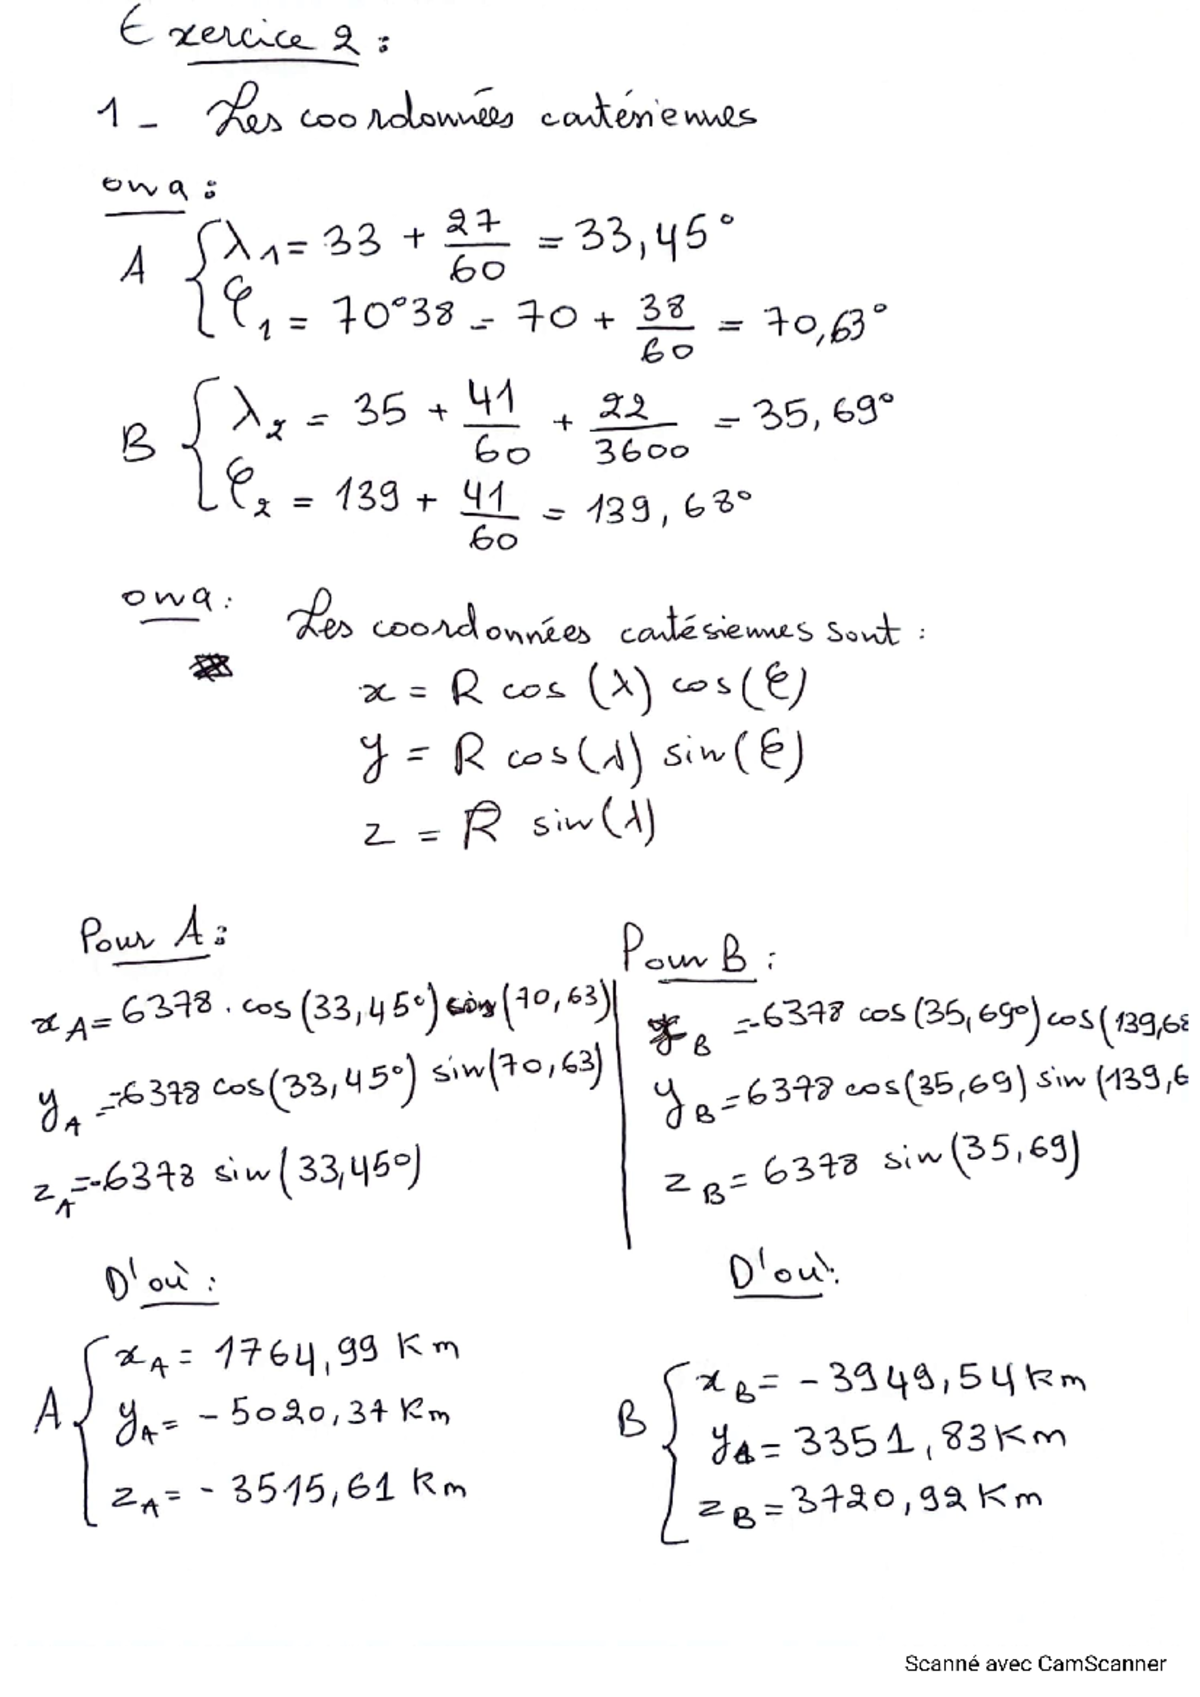 Exercice 2 :
1 - Les coordonnées cartésiennes
on a :
A { λ1 = 33 + 27/60 = 33,45°
φ1 = 70°38 = 70 + 38/60 = 70,63°
B { λ2 = 35 + 41/60 + 22/3600 = 35,69°
φ2 = 139 + 41/60 = 139,68°
on a : Les coordonnées cartésiennes sont :
x = R cos (λ) cos(φ)
y = R cos(λ) sin(φ)
z = R sin(λ)
Pour A :
xA = 6378 . cos (33,45°) cos (70,63)
yA = -6378 cos(33,45°) sin(70,63)
zA = -6378 sin(33,45°)
D'où :
A { xA = 1764,99 Km
yA = - 5020,37 Km
zA = - 3515,61 Km
Pour B :
B = -6378 cos(35,69°) cos(139,68
yB = 6378 cos(35,69) sin(139,6
zB = 6378 sin(35,69)
D'où :
B { xB = - 3949,54 Km
yB = 3351,83 Km
zB = 3720,92 Km
Scanné avec CamScanner